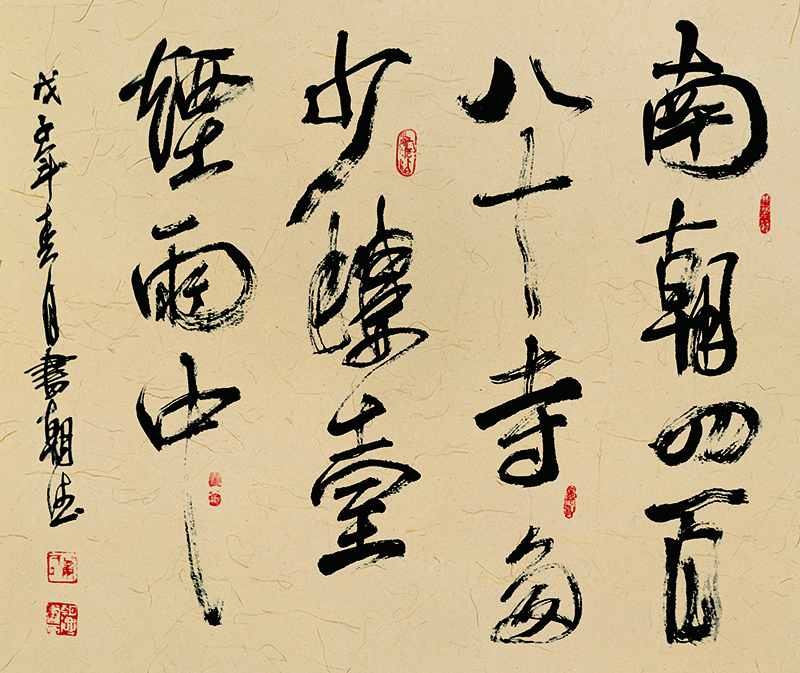 南朝四百
八十寺多
少樓臺
煙雨中
戊子年春月書朝